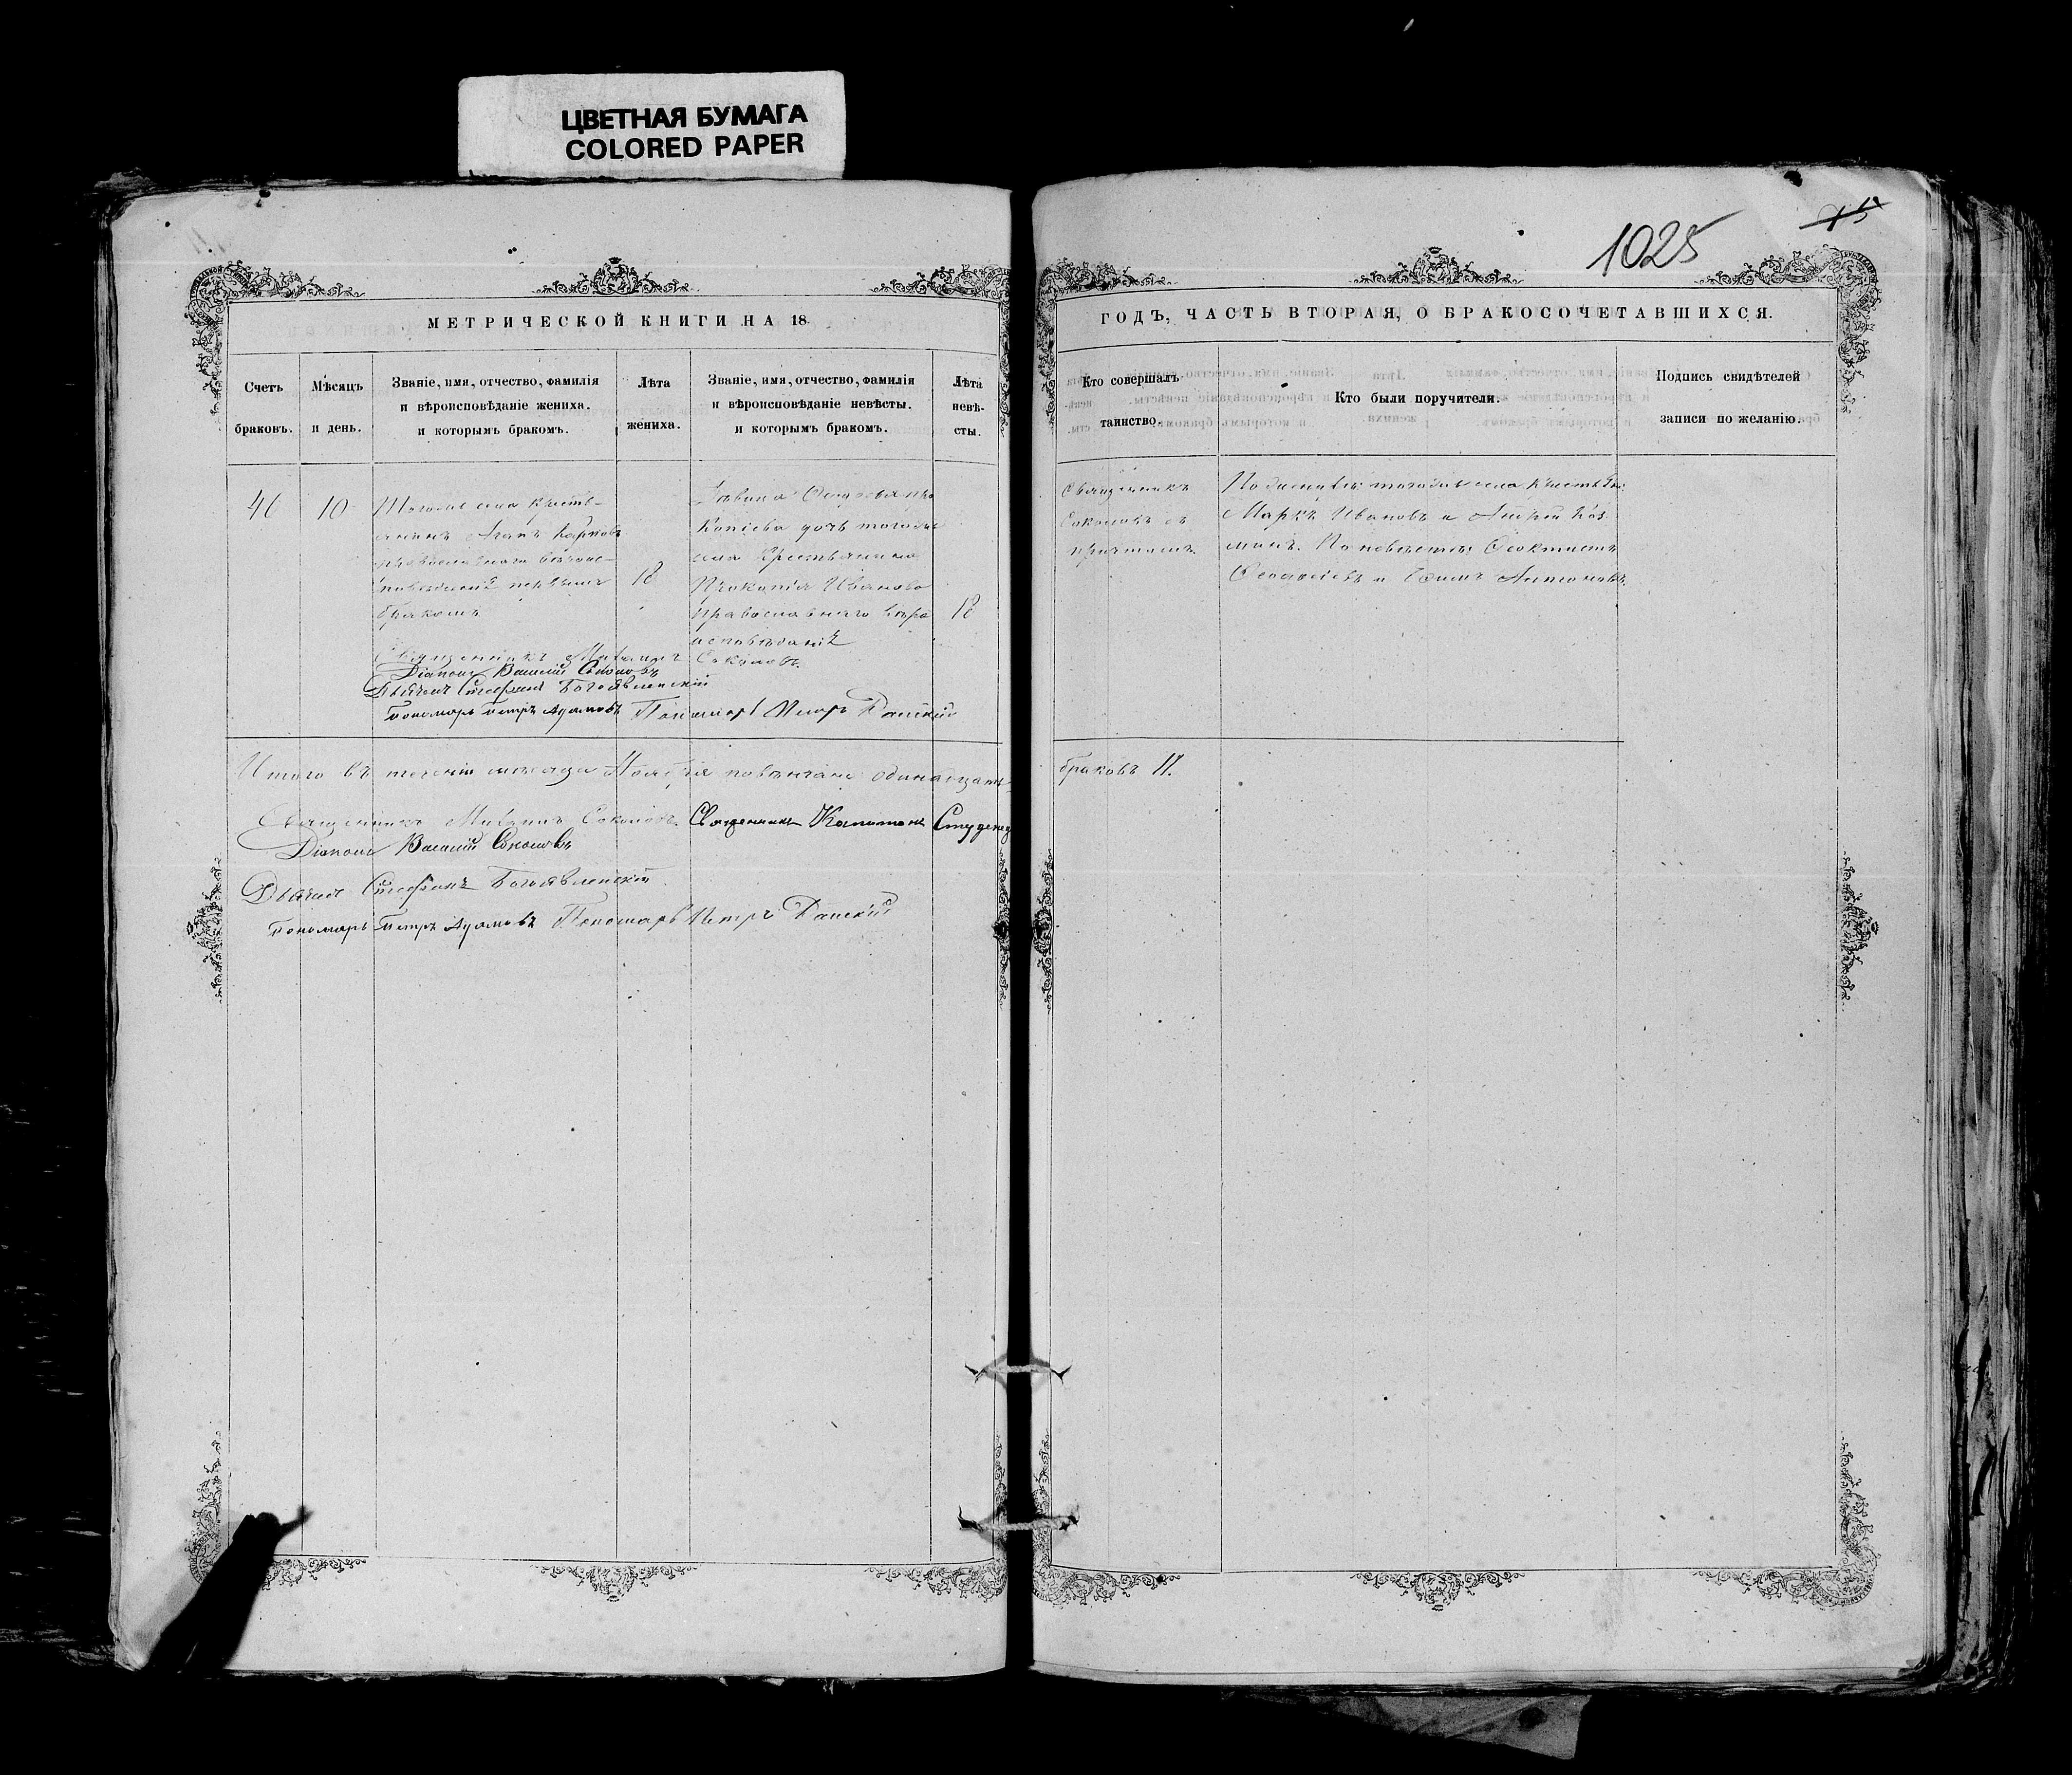 ЦВЕТНАЯ БУМАГА
COLORED PAPER
1025
МЕТРИЧЕСКОЙ КНИГИ НА 18
ГОДЪ, ЧАСТЬ ВТОРАЯ, О БРАКОСОЧЕТАВШИХСЯ.
Счетъ браковъ.
Мѣсяцъ и день.
Званіе, имя, отчество, фамилія
и вѣроисповѣданіе жениха.
и которымъ бракомъ.
Лѣта жениха.
Званіе, имя, отчество, фамилія
и вѣроисповѣданіе невѣсты.
и которымъ бракомъ.
Лѣта невѣ-
сты.
Кто совершалъ
таинство.
Кто были поручители.
Подпись свидѣтелей
записи по желанію.
10
Тогоже села кресть-
янинъ Агапъ Карповъ
православнаго вѣроис-
повѣданія первымъ
бракомъ
18
дочь тогоже
села крестьянина
Прокопія Иванова
православнаго вѣро
исповѣданія
18
Священникъ
Соколовъ съ
причтомъ.
тогоже села
Марко Ивановъ и Андрей Коз
минъ. По невѣстѣ: Ѳеоктистъ
и Антоновъ.
Священникъ Соколовъ.
Діаконъ Василій Соколовъ
Дьячекъ Стефанъ Богоявленскій
Пономарь Петръ Адамовъ Пономарь Петръ
Итого въ теченіи месяца Ноября повѣнчано одинадцать
браковъ 11.
Священникъ Соколовъ. Священникъ Капитонъ
Діаконъ Василій Соколовъ
Дьячекъ Стефанъ Богоявленскій
Пономарь Петръ Адамовъ Пономарь Петръ